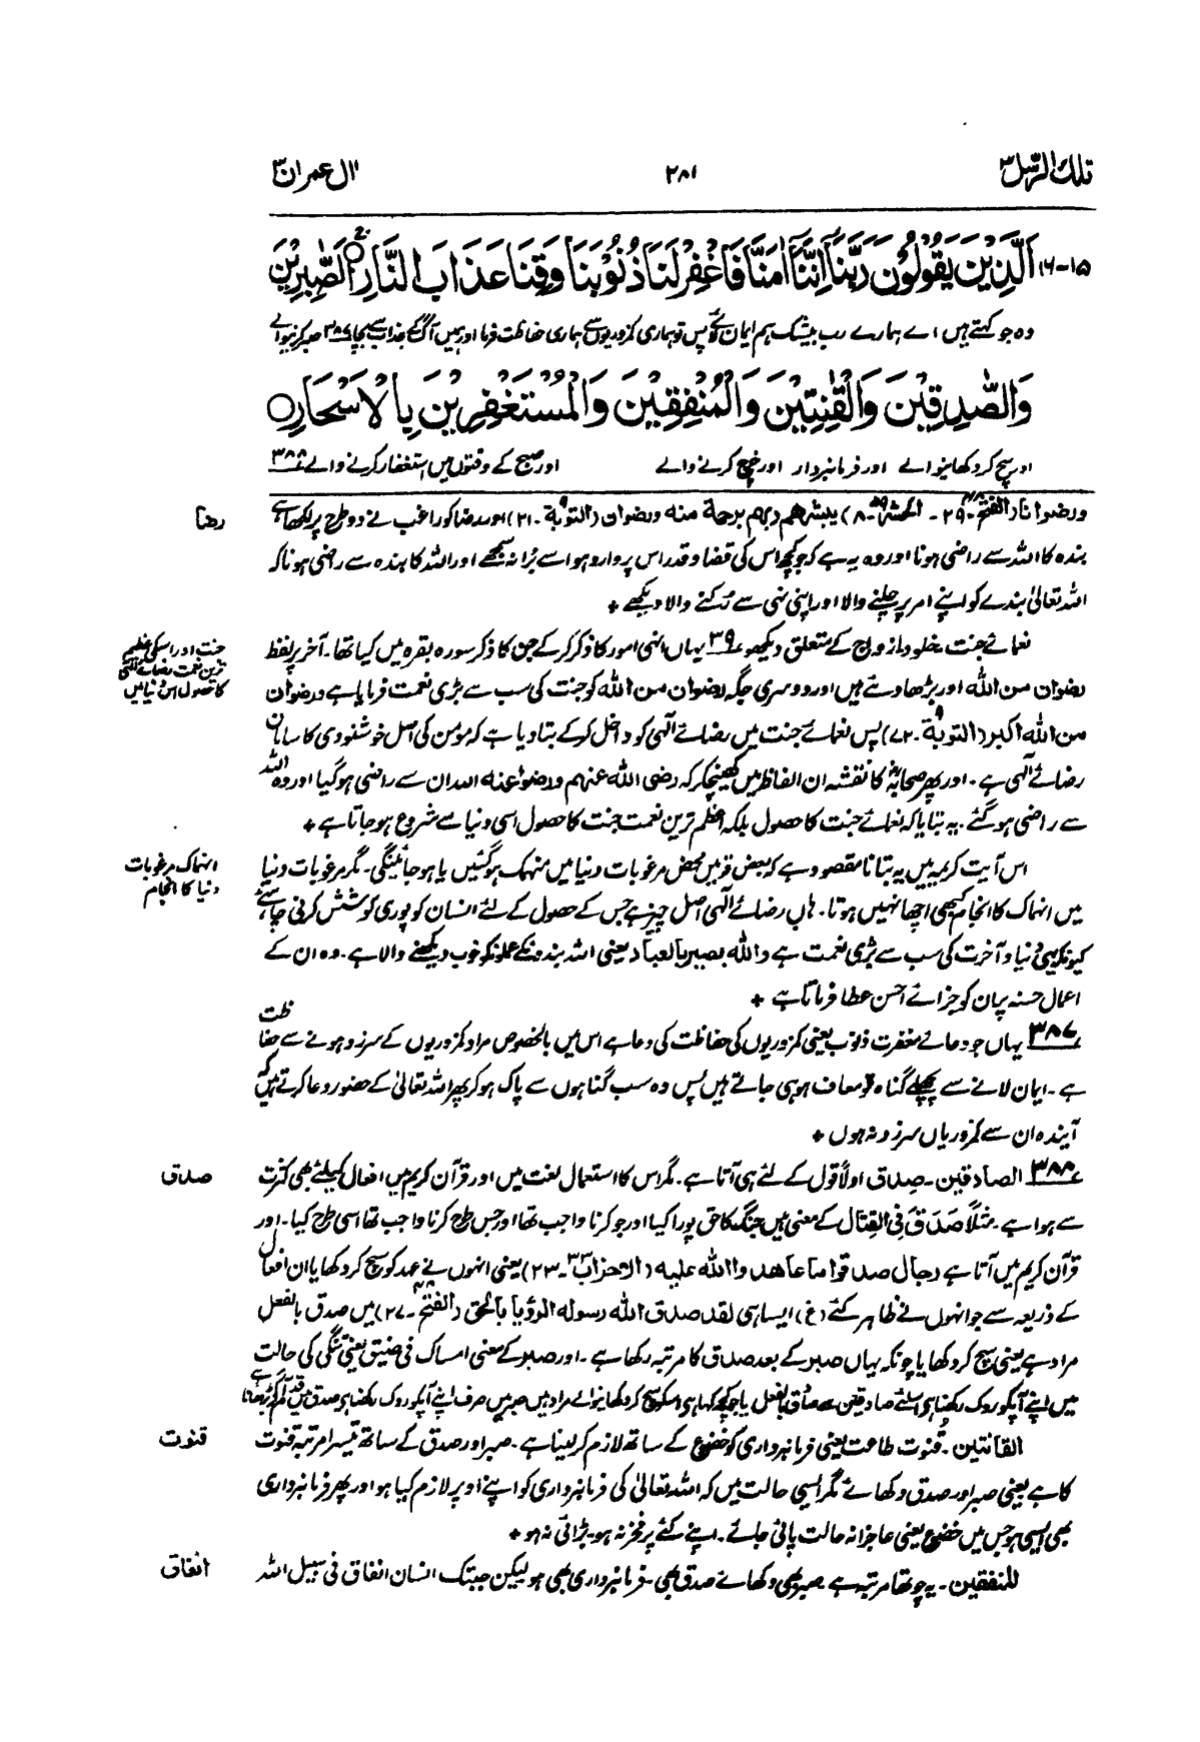 تلك الرسل ۳
۲۸۱
اٰل عمران ۳
۱۵-۱۶ اَلَّذِيْنَ يَقُوْلُوْنَ رَبَّنَاۤ اِنَّنَاۤ اٰمَنَّا فَاغْفِرْ لَنَا ذُنُوْبَنَا وَقِنَا عَذَابَ النَّارِ ○ اَلصّٰبِرِيْنَ
وہ جو کہتے ہیں اے ہمارے رب بیشک ہم ایمان لائے پس تو ہماری کمزوریوں سے ہماری حفاظت فرما اور ہمیں آگ کے عذاب سے بچا ۳۸۷ صبر کرنیوالے
وَالصّٰدِقِيْنَ وَالْقٰنِتِيْنَ وَالْمُنْفِقِيْنَ وَالْمُسْتَغْفِرِيْنَ بِالْاَسْحَارِ ○
اور سچ کر دکھانیوالے اور فرمانبردار اور خرچ کرنے والے اور صبح کے وقتوں میں استغفار کرنے والے ۳۸۸
رضا
ورضوانا (الفتح ۴۸-۲۹- الحشر ۵۹-۸) یبشرھم ربھم برحمة منه ورضوان (التوبة ۹-۲۱) اور رضا کو راغب نے دو طرح پر لکھا ہے
بندہ کا اللہ سے راضی ہونا اور وہ یہ ہے کہ جو کچھ اس کی قضا و قدر اس پر وارد ہو اسے بُرا نہ سمجھے اور اللہ کا بندہ سے راضی ہونا کہ
اللہ تعالیٰ بندے کو اپنے امر پر چلنے والا اور اپنی نہی سے رُکنے والا دیکھے +
جنت اور اسکی عظیم
ترین نعمت رضائے الٰہی
کا حصول اس دنیا میں
نعمائے جنت۔ خلود ازواج کے متعلق دیکھو ۳۹ یہاں انہی امور کا ذکر کر کے جن کا ذکر سورہ بقرہ میں کیا تھا۔ آخر پر لفظ
رضوان من اللہ اور بڑھا دئے ہیں اور دوسری جگہ رضوان من اللہ کو جنت کی سب سے بڑی نعمت فرمایا ہے ورضوان
من اللہ اکبر (التوبة ۹-۷۲) پس نعمائے جنت میں رضائے الٰہی کو داخل کر کے بتا دیا ہے کہ مؤمن کی اصل خوشنودی کا سامان
رضائے الٰہی ہے۔ اور پھر صحابہؓ کا نقشہ ان الفاظ میں کھینچ کر کہ رضی اللہ عنھم ورضوا عنہ اللہ ان سے راضی ہو گیا اور وہ اللہ
سے راضی ہو گئے۔ یہ بتایا کہ نعمائے جنت کا حصول بلکہ اعظم ترین نعمت جنت کا حصول اسی دنیا سے شروع ہو جاتا ہے +
انہماک مرغوبات
دنیا کا انجام
اس آیت کریمہ میں یہ بتانا مقصود ہے کہ بعض قومیں محض مرغوبات دنیا میں منہمک ہو گئیں یا ہو جائینگی۔ مگر مرغوبات دنیا
میں انہماک کا انجام کبھی اچھا نہیں ہوتا۔ ہاں رضائے الٰہی اصل چیز ہے جس کے حصول کے لئے انسان کو پوری کوشش کرنی چاہئے
کیونکہ یہی دنیا و آخرت کی سب سے بڑی نعمت ہے واللہ بصیر بالعباد یعنی اللہ بندونکے عملونکو خوب دیکھنے والا ہے۔ وہ ان کے
اعمال حسنہ پر ان کو جزائے احسن عطا فرماتا ہے +
۳۸۷ یہاں جو دعائے مغفرت ذنوب یعنی کمزوریوں کی حفاظت کی دعا ہے اس میں بالخصوص مراد کمزوریوں کے سرزد ہونے سے حفاظت
ہے۔ ایمان لانے سے پچھلے گناہ تو معاف ہو ہی جاتے ہیں پس وہ سب گناہوں سے پاک ہو کر پھر اللہ تعالیٰ کے حضور دعا کرتے ہیں کہ
آیندہ ان سے کمزوریاں سرزد نہ ہوں +
صدق
۳۸۸ الصادقین۔ صِدق اولاً قول کے لئے ہی آتا ہے۔ مگر اس کا استعمال لغت میں اور قرآن کریم میں افعال کیلئے بھی کثرت
سے ہوا ہے۔ مثلاً صَدَقَ فِی القِتَال کے معنی ہیں جنگ کا حق پورا کیا اور جو کرنا واجب تھا اور جس طرح کرنا واجب تھا اسی طرح کیا۔ اور
قرآن کریم میں آتا ہے رجال صدقوا ما عاھدوا اللہ علیہ (الاحزاب ۳۳-۲۳) یعنی انہوں نے عہد کو سچ کر دکھایا ان افعال
کے ذریعہ سے جو انہوں نے ظاہر کئے (غ) ایسا ہی لقد صدق اللہ رسولہ الرؤیا بالحق (الفتح ۴۸-۲۷) میں صدق بالفعل
مراد ہے یعنی سچ کر دکھایا چونکہ یہاں صبر کے بعد صدق کا مرتبہ رکھا ہے۔ اور صبر کے معنی امساک فی ضیق یعنی تنگی کی حالت
میں اپنے آپکو روک رکھنا ہے اسلئے صادقین سے صدق بالفعل یا جو کچھ کہا ہے اسکو سچ کر دکھانیوالے مراد ہیں صبر میں صرف اپنے آپکو روک رکھنا ہے صدق میں قدم آگے بڑھانا ہے
قنوت
القانتین۔ قُنوت طاعت یعنی فرمانبرداری کو خضوع کے ساتھ لازم کر لینا ہے۔ صبر اور صدق کے ساتھ تیسرا مرتبہ قنوت
کا ہے یعنی صبر اور صدق دکھائے مگر ایسی حالت میں کہ اللہ تعالیٰ کی فرمانبرداری کو اپنے اوپر لازم کیا ہو اور پھر فرمانبرداری
بھی ایسی ہو جس میں خضوع یعنی عاجزانہ حالت پائی جائے۔ اپنے کئے پر فخر نہ ہو۔ بڑائی نہ ہو +
انفاق
للمنفقین۔ یہ چوتھا مرتبہ ہے صبر بھی دکھائے صدق بھی۔ فرمانبرداری بھی ہو لیکن جبتک انسان انفاق فی سبیل اللہ